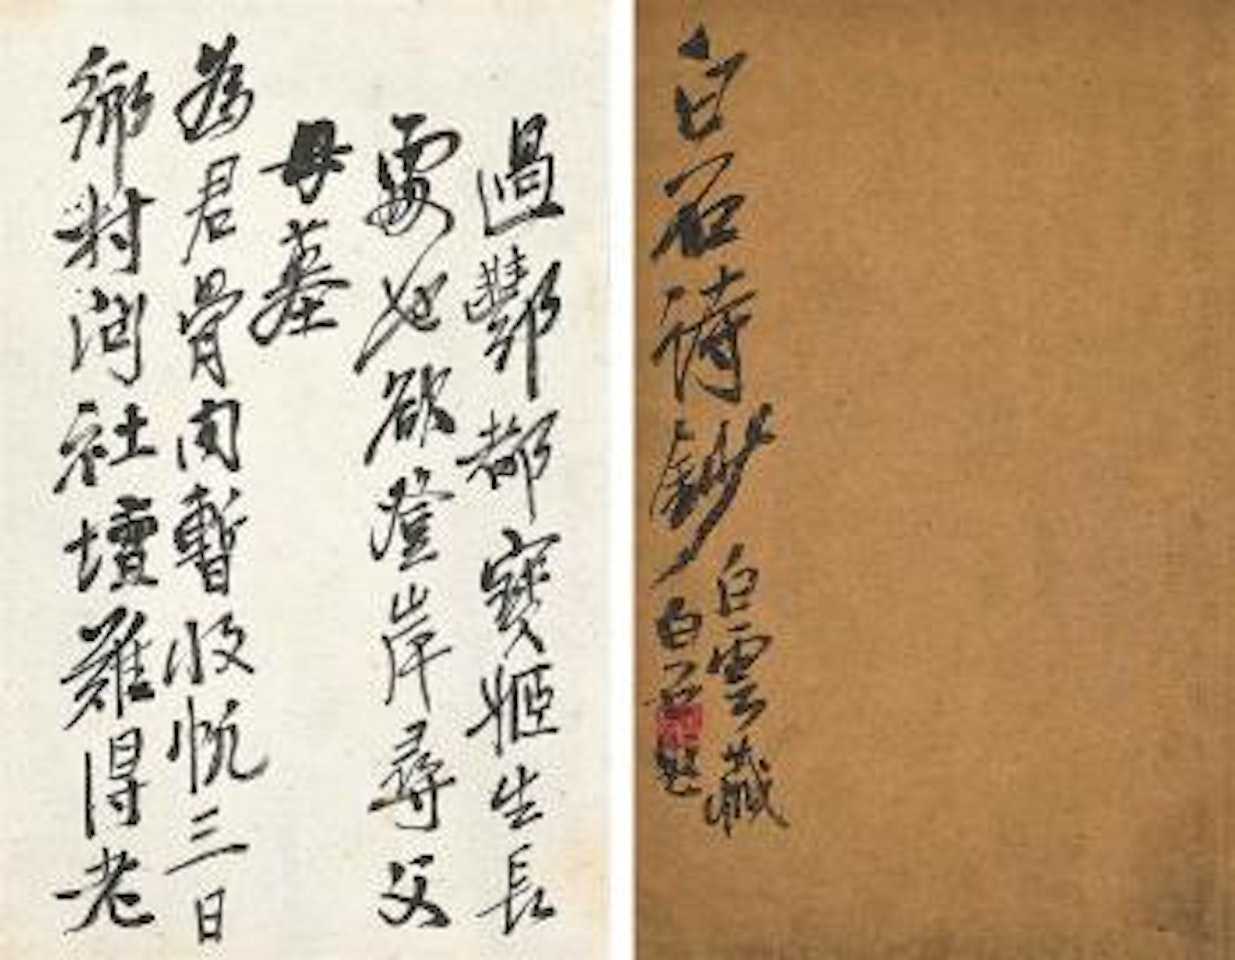 白石詩鈔
白雲藏
白石題
過酆都寶姬生長
處也欲登岸尋父
母墓
為君骨肉暫收帆三日
鄉村問社壇難得老